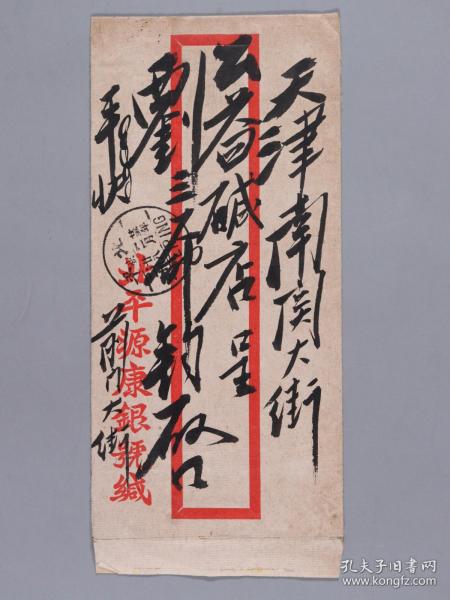 天津南関大街
公益碱店呈
劉三爺鈞啟
平
北平源康銀號緘
前门大街
孔夫子旧书网
www.kongfz.com